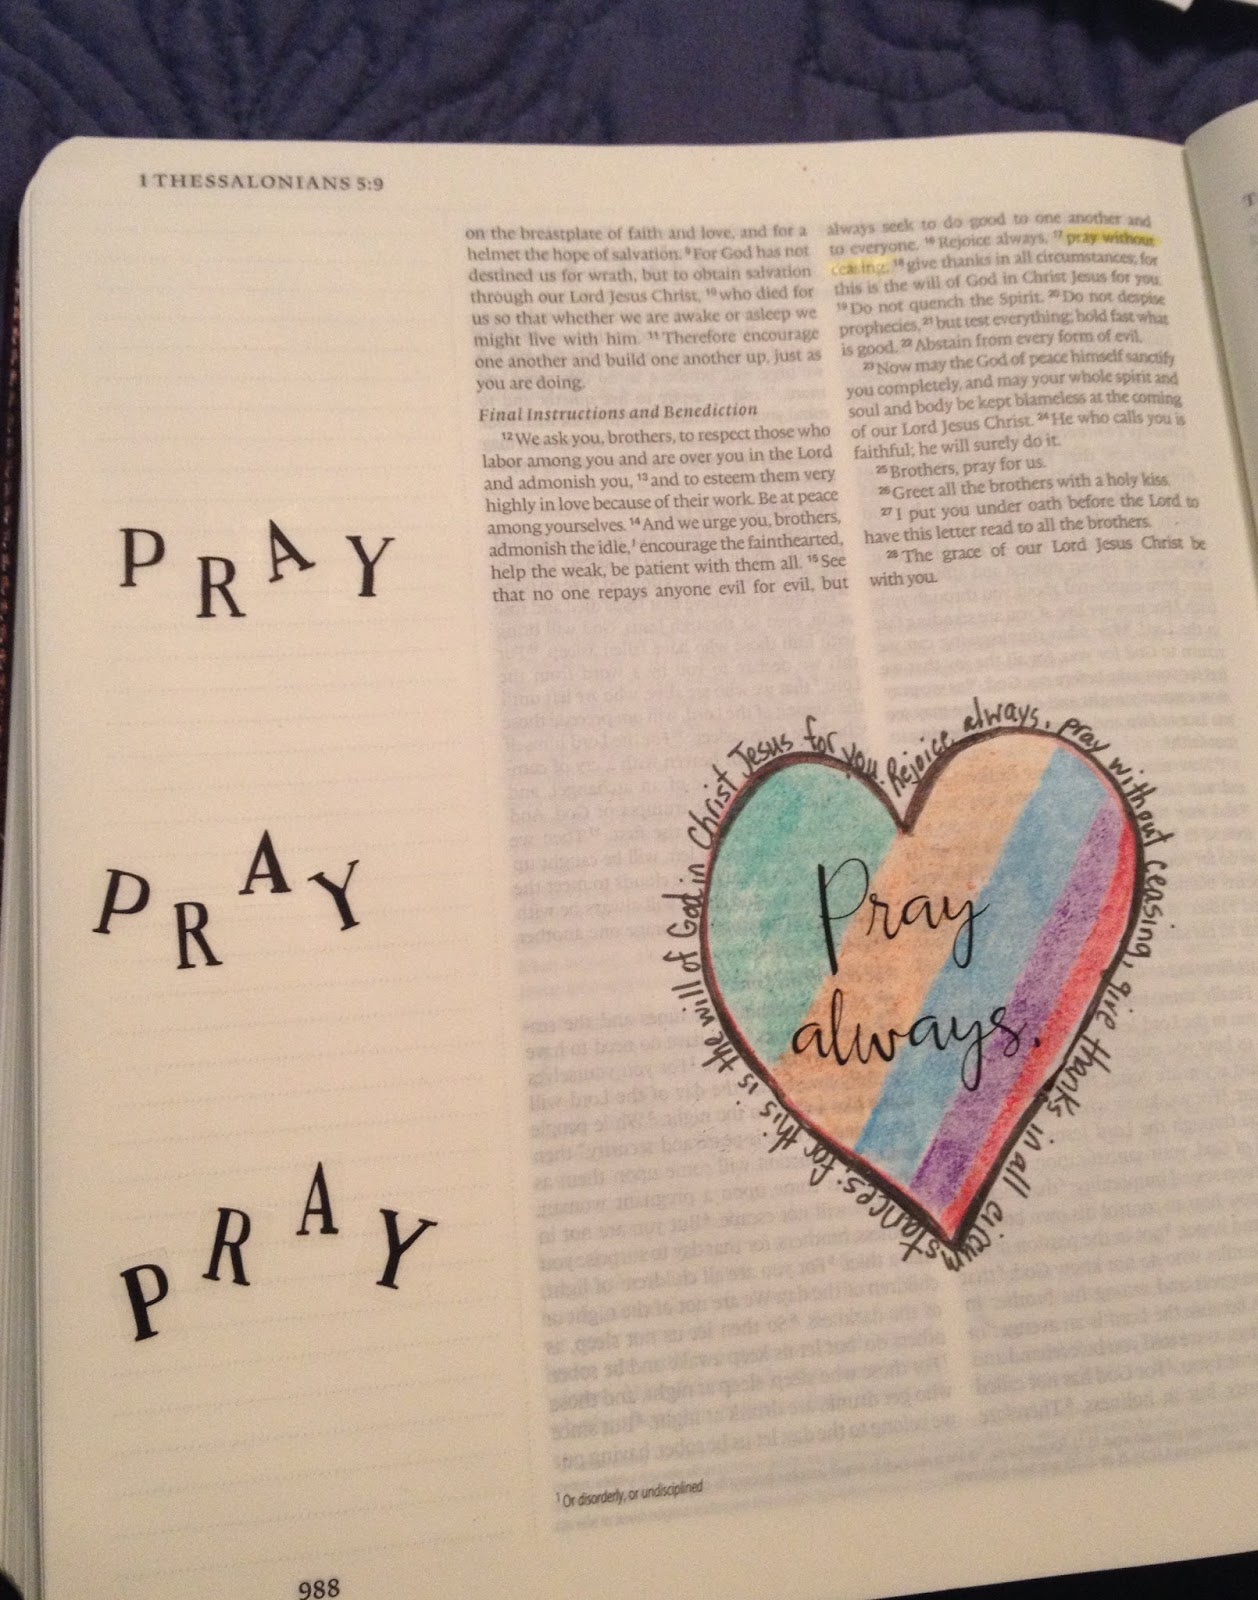 1 THESSALONIANS 5:9
on the breastplate of faith and love, and for a
helmet the hope of salvation. 9 For God has not
destined us for wrath, but to obtain salvation
through our Lord Jesus Christ, 10 who died for
us so that whether we are awake or asleep we
might live with him. 11 Therefore encourage
one another and build one another up, just as
you are doing.
Final Instructions and Benediction
12 We ask you, brothers, to respect those who
labor among you and are over you in the Lord
and admonish you, 13 and to esteem them very
highly in love because of their work. Be at peace
among yourselves. 14 And we urge you, brothers,
admonish the idle,1 encourage the fainthearted,
help the weak, be patient with them all. 15 See
that no one repays anyone evil for evil, but
always seek to do good to one another and
to everyone. 16 Rejoice always, 17 pray without
ceasing, 18 give thanks in all circumstances; for
this is the will of God in Christ Jesus for you.
19 Do not quench the Spirit. 20 Do not despise
prophecies, 21 but test everything; hold fast what
is good. 22 Abstain from every form of evil.
23 Now may the God of peace himself sanctify
you completely, and may your whole spirit and
soul and body be kept blameless at the coming
of our Lord Jesus Christ. 24 He who calls you is
faithful; he will surely do it.
25 Brothers, pray for us.
26 Greet all the brothers with a holy kiss.
27 I put you under oath before the Lord to
have this letter read to all the brothers.
28 The grace of our Lord Jesus Christ be
with you.
PRAY
PRAY
PRAY
Rejoice always, pray without ceasing, give thanks in all circumstances; for this is the will of God in Christ Jesus for you.
Pray
always.
1 Or disorderly, or undisciplined
988